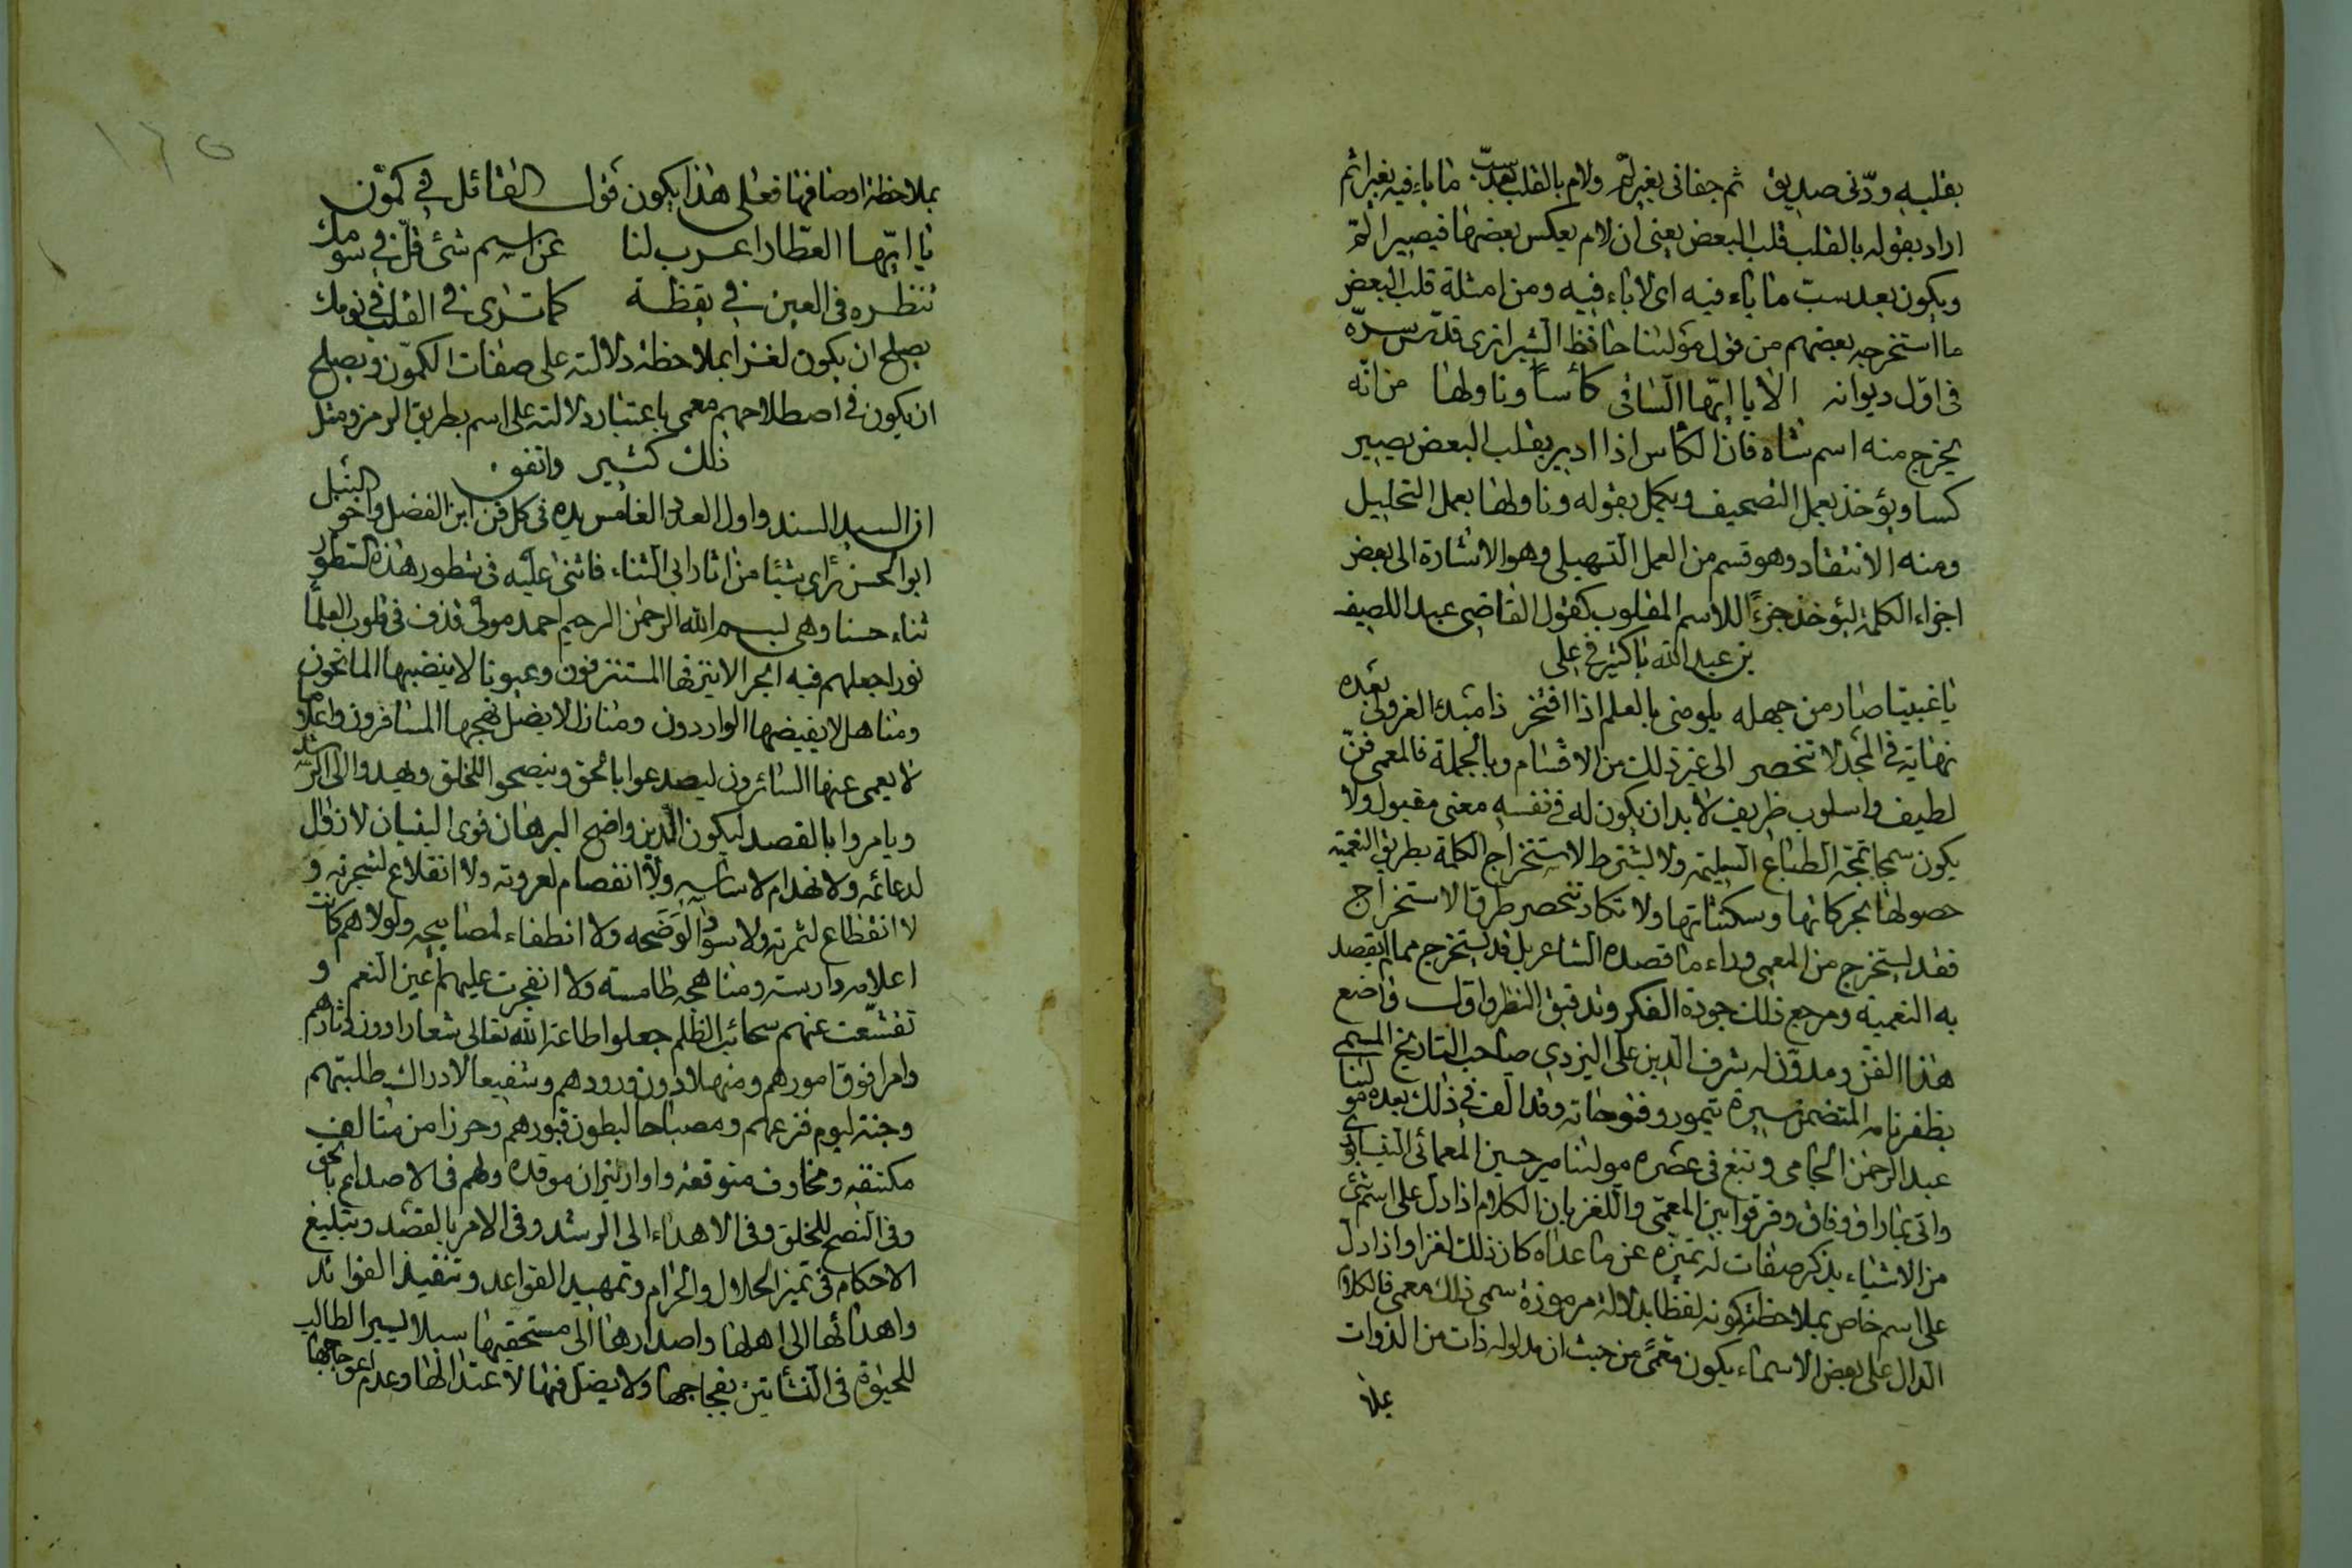 بقلبه ودّني صديق ثم جفاني بغير لثم ولام بالقلب بعد سبّ ما باء فيه بغير اثم
اراد بقوله بالقلب قلب البعض يعني ان لام يعكس بعضها فيصير الثم
ويكون بعد سبّ ما باء فيه اي لا باء فيه ومن امثلة قلب البعض
ما استخرجه بعضهم من قول مولٰنا حافظ الشيرازي قدّس سرّه
في اوّل ديوانه الا يا ايّها السّاقي كأسا وناولها من انّه
يخرج منه اسم شاه فان الكاس اذا ادير بقلب البعض يصير
كسا ويؤخذ بعمل التصحيف ويكمل بقوله وناولها بعمل التحليل
ومنه الانتقاد وهو قسم من العمل التسهيلي وهو الاشارة الى بعض
اجزاء الكلمة ليؤخذ جزءًا للاسم المقلوب كقول القاضي عبد اللصيف
بن عبد الله باكثير في علي
يا غبيتا صار من جهله يلومني بالعلم اذا افتخر ذا مبدء الغر ولي بعده
نهاية في المجد لا تنحصر الى غير ذلك من الاقسام وبالجملة فالمعمى فنّ
لطيف واسلوب ظريف لا بد ان يكون له في نفسه معنى مقبول ولا
يكون سمجا تمجّه الطباع السليمة ولا يشترط لاستخراج الكلمة بطريق التعمية
حصولها بحركاتها وسكناتها ولا تكاد تنحصر طرق الاستخراج
فقد يستخرج من المعمى وراء ما قصده الشاعر بل قد يستخرج مما لم يقصد
به التعمية ومرجع ذلك جودة الفكر وتدقيق النظر واول واضع
هذا الفن ومدوّن له شرف الدين علي اليزدي صاحب التاريخ المسمى
بظفرنامه المتضمن سيرة تيمور وفتوحاته وقد الف في ذلك بعده مولٰنا
عبد الرحمن الجامي ونبغ في عصره مولٰنا مير حسين المعمائي النيسابوري
واتى بما راق وفاق وفرقوا بين المعمّى واللغز بان الكلام اذا دل على اسم شيء
من الاشياء بذكر صفات له تميّزه عن ما عداه كان ذلك لغزا واذا دل
على اسم خاص بملاحظة كونه لفظا بدلالة مرموزة سمى ذلك معمى فالكلام
الدال على بعض الاسماء يكون معمًّى من حيث ان مدلوله ذات من الذوات
بملا
بملاحظة اوصافها فعلى هذا يكون قول القائل في كمّون
يا ايّها العطّار اعرب لنا عن اسم شئ قلّ في سومك
تنظره في العين في يقظة كما ترى في القلب في نومك
يصلح ان يكون لغزا بملاحظة دلالته على صفات الكمّون ويصلح
ان يكون في اصطلاحهم معمى باعتبار دلالته على اسم بطريق الرمز ومثل
ذلك كثير واتفق
ان السيد السند واول العدد الغامس يده في كل فن ابن الفضل واخو النبل
ابو الحسن رأى شيئا من اثار ابي الثناء فاثنى عليه في سطور هذه السطور
ثناء حسنا وهي بسم الله الرحمن الرحيم احمد مولى قذف في قلوب العلما
نورا جعلهم فيه ابحرا لا ينزفها المستنزفون وعيونا لا ينضبها الماتحون
ومناهل لا يغيضها الواردون ومنازل لا يضل نهجها المسافرون واعلاما
لا يعمى عنها السائرون ليصدعوا بالحق وينصحوا للخلق ويهدوا الى الرشد
ويامروا بالقصد ليكون الدين واضح البرهان قوى البنيان لا زوال
لدعائمه ولا انهدام لاساسه ولا انفصام لعروته ولا انقلاع لشجرته و
لا انقطاع لثمرته ولا سواد لوضحه ولا انطفاء لمصابيحه ولولاهم كانت
اعلامه دارسة ومناهجه طامسة ولا انفجرت عليهم اعين النعم و
تقشّعت عنهم سحائب الظلم جعلوا طاعة الله تعالى شعارا دون دثارهم
وامرا فوق امورهم ومنهلا دون ورودهم وشفيعا لادراك طلبتهم
وجنة ليوم فزعهم ومصباحا لبطون قبورهم وحرزا من متالف
مكتنفه ومخاوف متوقعه واوار نيران موقده ولهم في الاصداع بالحق
وفي النصح للخلق وفي الاهداء الى الرشد وفي الامر بالقصد وتبليغ
الاحكام في تميز الحلال والحرام وتمهيد القواعد وتنقيذ الفوائد
واهدائها الى اهلها واصدارها الى مستحقيها سبلا ليسير الطالب
للحيٰوة في النشاتين بفجاجها ولا يضل فيها لاعتدالها وعدم اعوجاجها